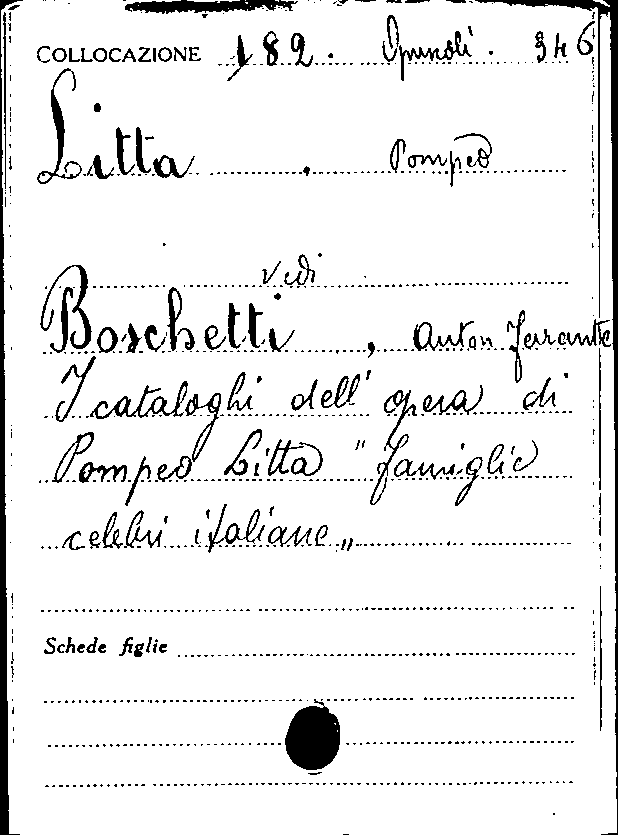 COLLOCAZIONE 182. Opuscoli. 346
Litta, Pompeo
vedi
Boschetti, Anton Ferrante
I cataloghi dell' opera di
Pompeo Litta "famiglie
celebri italiane„
Schede figlie